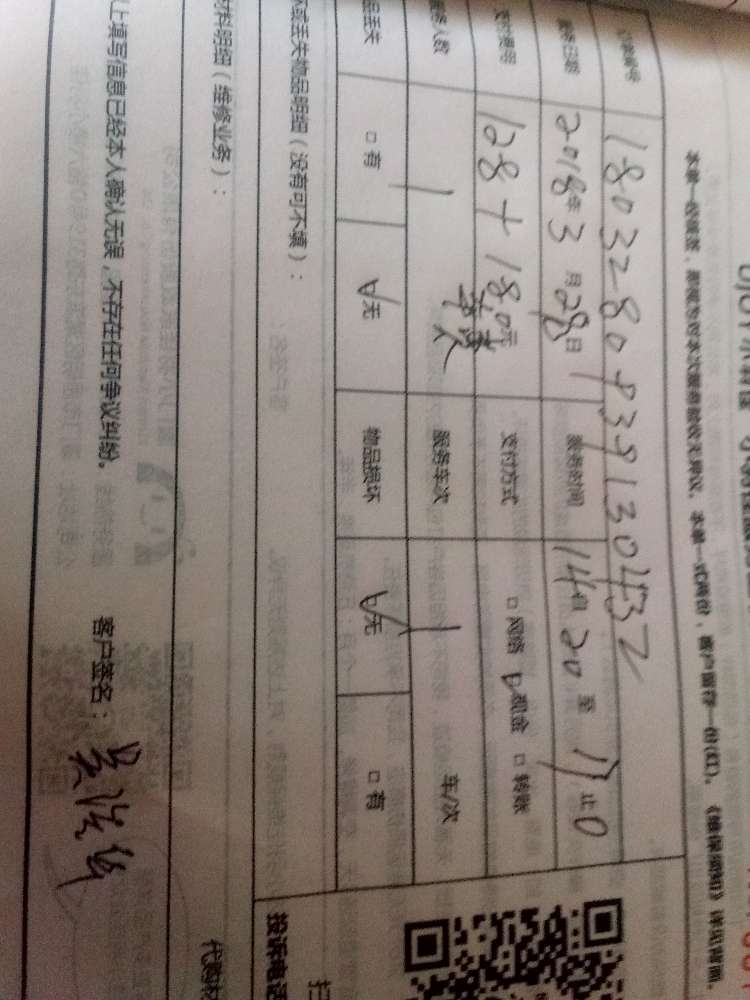 本单一经核签，即视为对本次服务验收无异议。本单一式两份，客户留存一份(红)。《维保须知》详见背面。
订单编号 1803280939130432
服务日期 2018年3月28日 服务时间 14自20至17止0
支付费用 128+180元 支付方式 □网络 □现金 □转账
服务人数 1 人 服务车次 1 车/次
品丢失 □有 □无 物品损坏 □无 □有
坏或丢失物品明细（没有可不填）：
材料明细（维修业务）：
投诉电话
代购材
上填写信息已经本人确认无误，不存在任何争议纠纷。 客户签名：